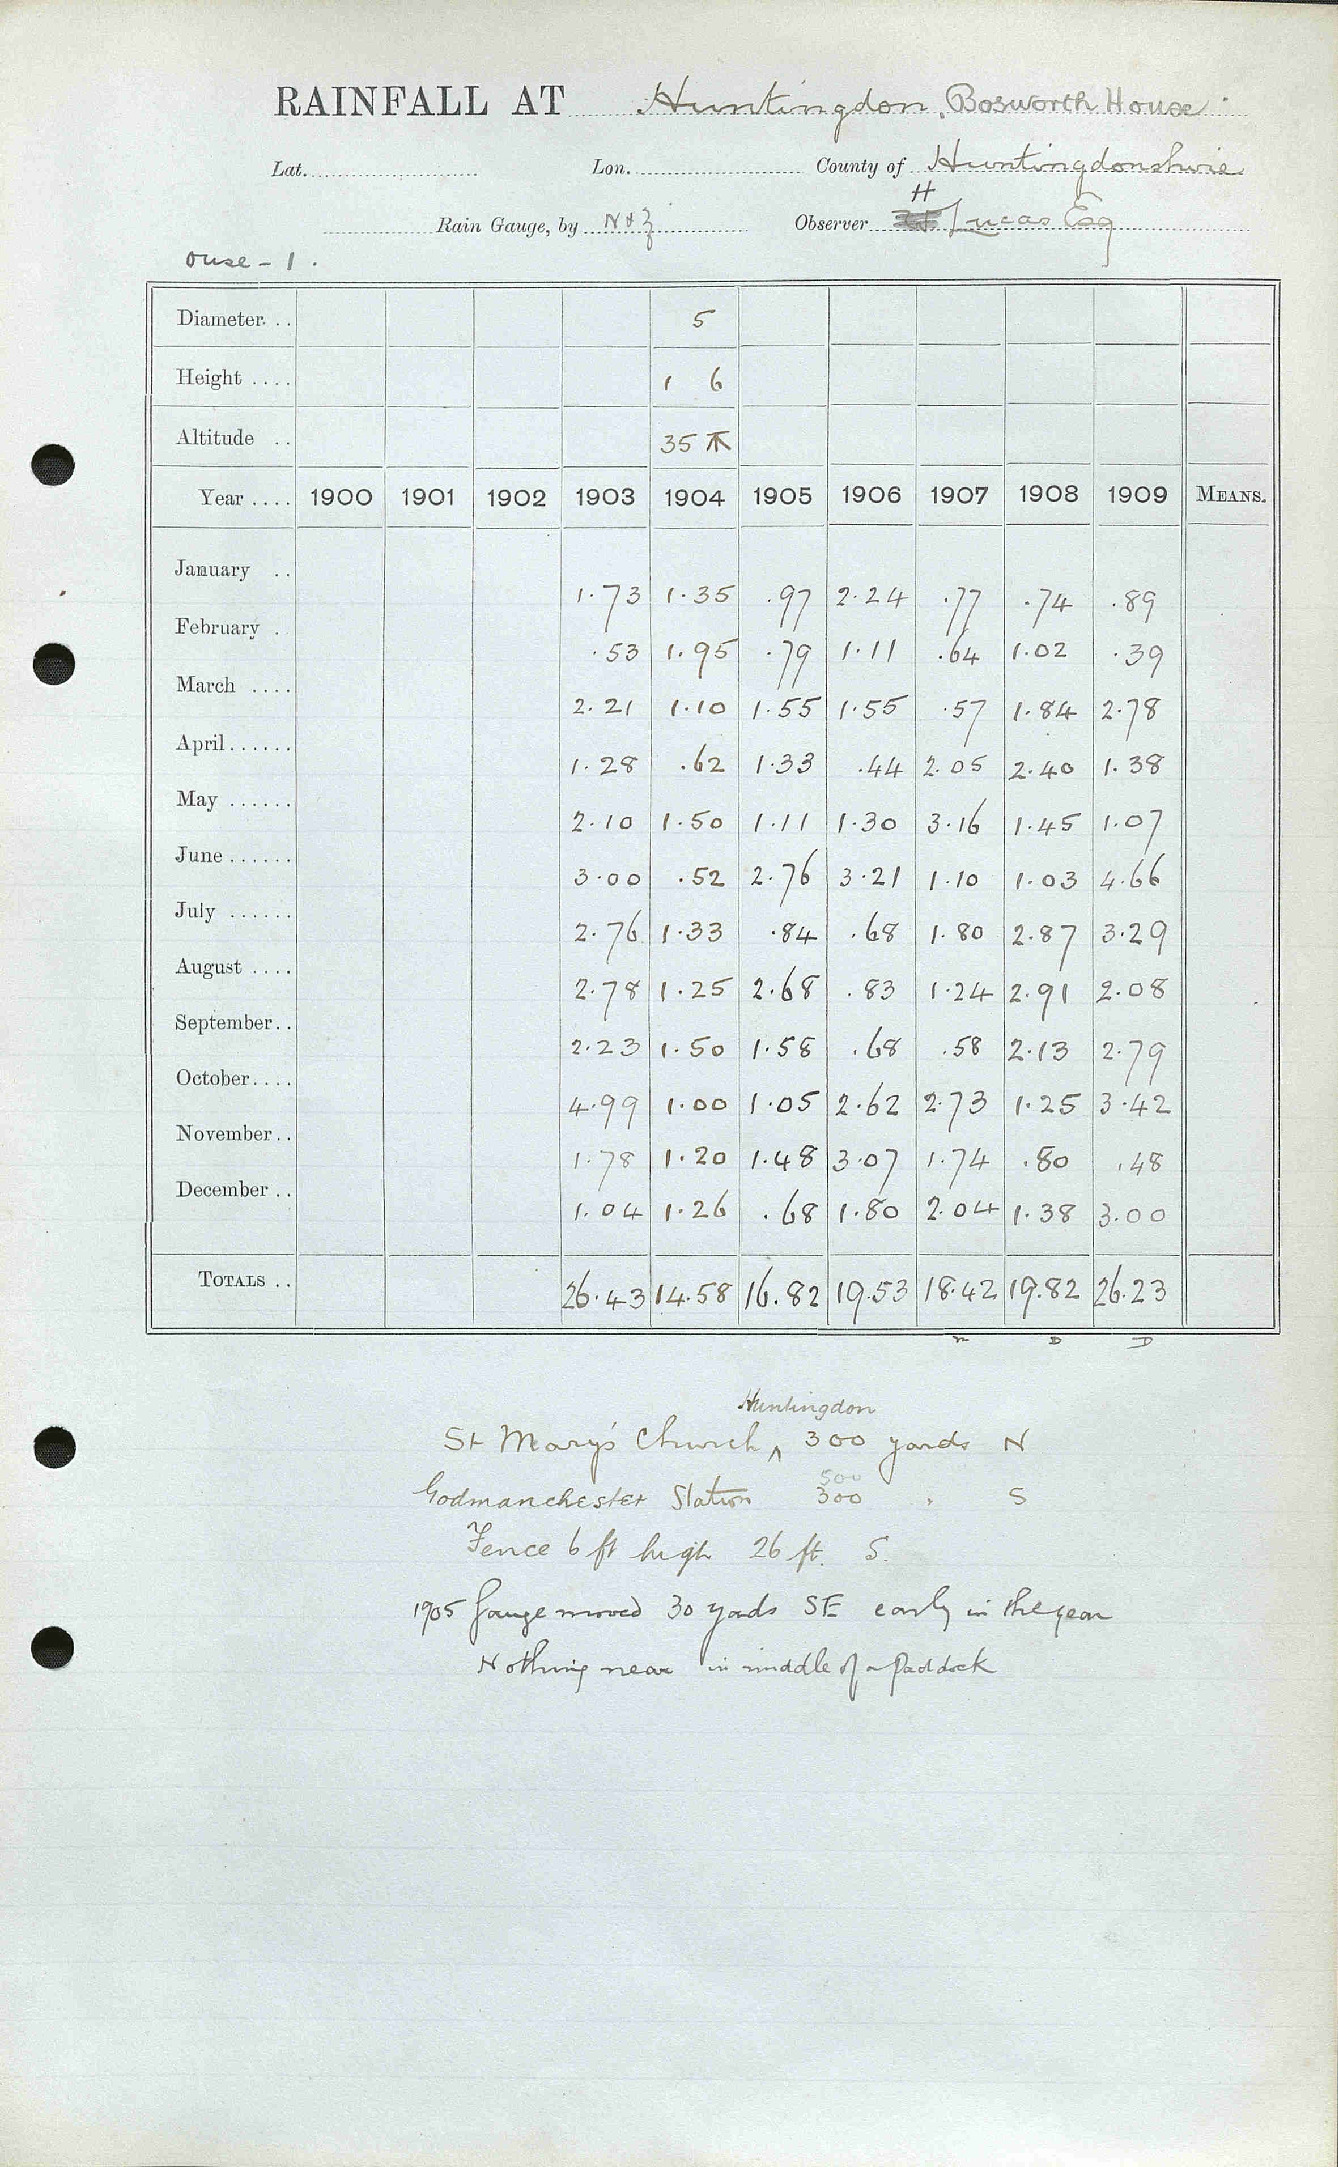 RAINFALL AT Huntingdon, Bosworth House
Lat. Lon. County of Huntingdonshire
H
Rain Gauge, by N & Z Observer Lucas Esq
Ouse - 1.
Diameter. . . 5
Height .... 1 6
Altitude .. 35
Year .... 1900 1901 1902 1903 1904 1905 1906 1907 1908 1909 MEANS.
January .. 1.73 1.35 .97 2.24 .77 .74 .89
February . .53 1.95 .79 1.11 .64 1.02 .39
March .... 2.21 1.10 1.55 1.55 .57 1.84 2.78
April...... 1.28 .62 1.33 .44 2.05 2.40 1.38
May ...... 2.10 1.50 1.11 1.30 3.16 1.45 1.07
June...... 3.00 .52 2.76 3.21 1.10 1.03 4.66
July ...... 2.76 1.33 .84 .68 1.80 2.87 3.29
August .... 2.78 1.25 2.68 .83 1.24 2.91 2.08
September.. 2.23 1.50 1.58 .68 .58 2.13 2.79
October.... 4.99 1.00 1.05 2.62 2.73 1.25 3.42
November.. 1.78 1.20 1.48 3.07 1.74 .80 .48
December .. 1.04 1.26 .68 1.80 2.04 1.38 3.00
TOTALS .. 26.43 14.58 16.82 19.53 18.42 19.82 26.23
D D
Huntingdon
St Mary's Church ^ 300 yards N
500
Godmanchester Station 300 " S
Fence 6 ft high 26 ft. S.
1905 Gauge moved 30 yards SE early in the year
Nothing near in middle of a paddock